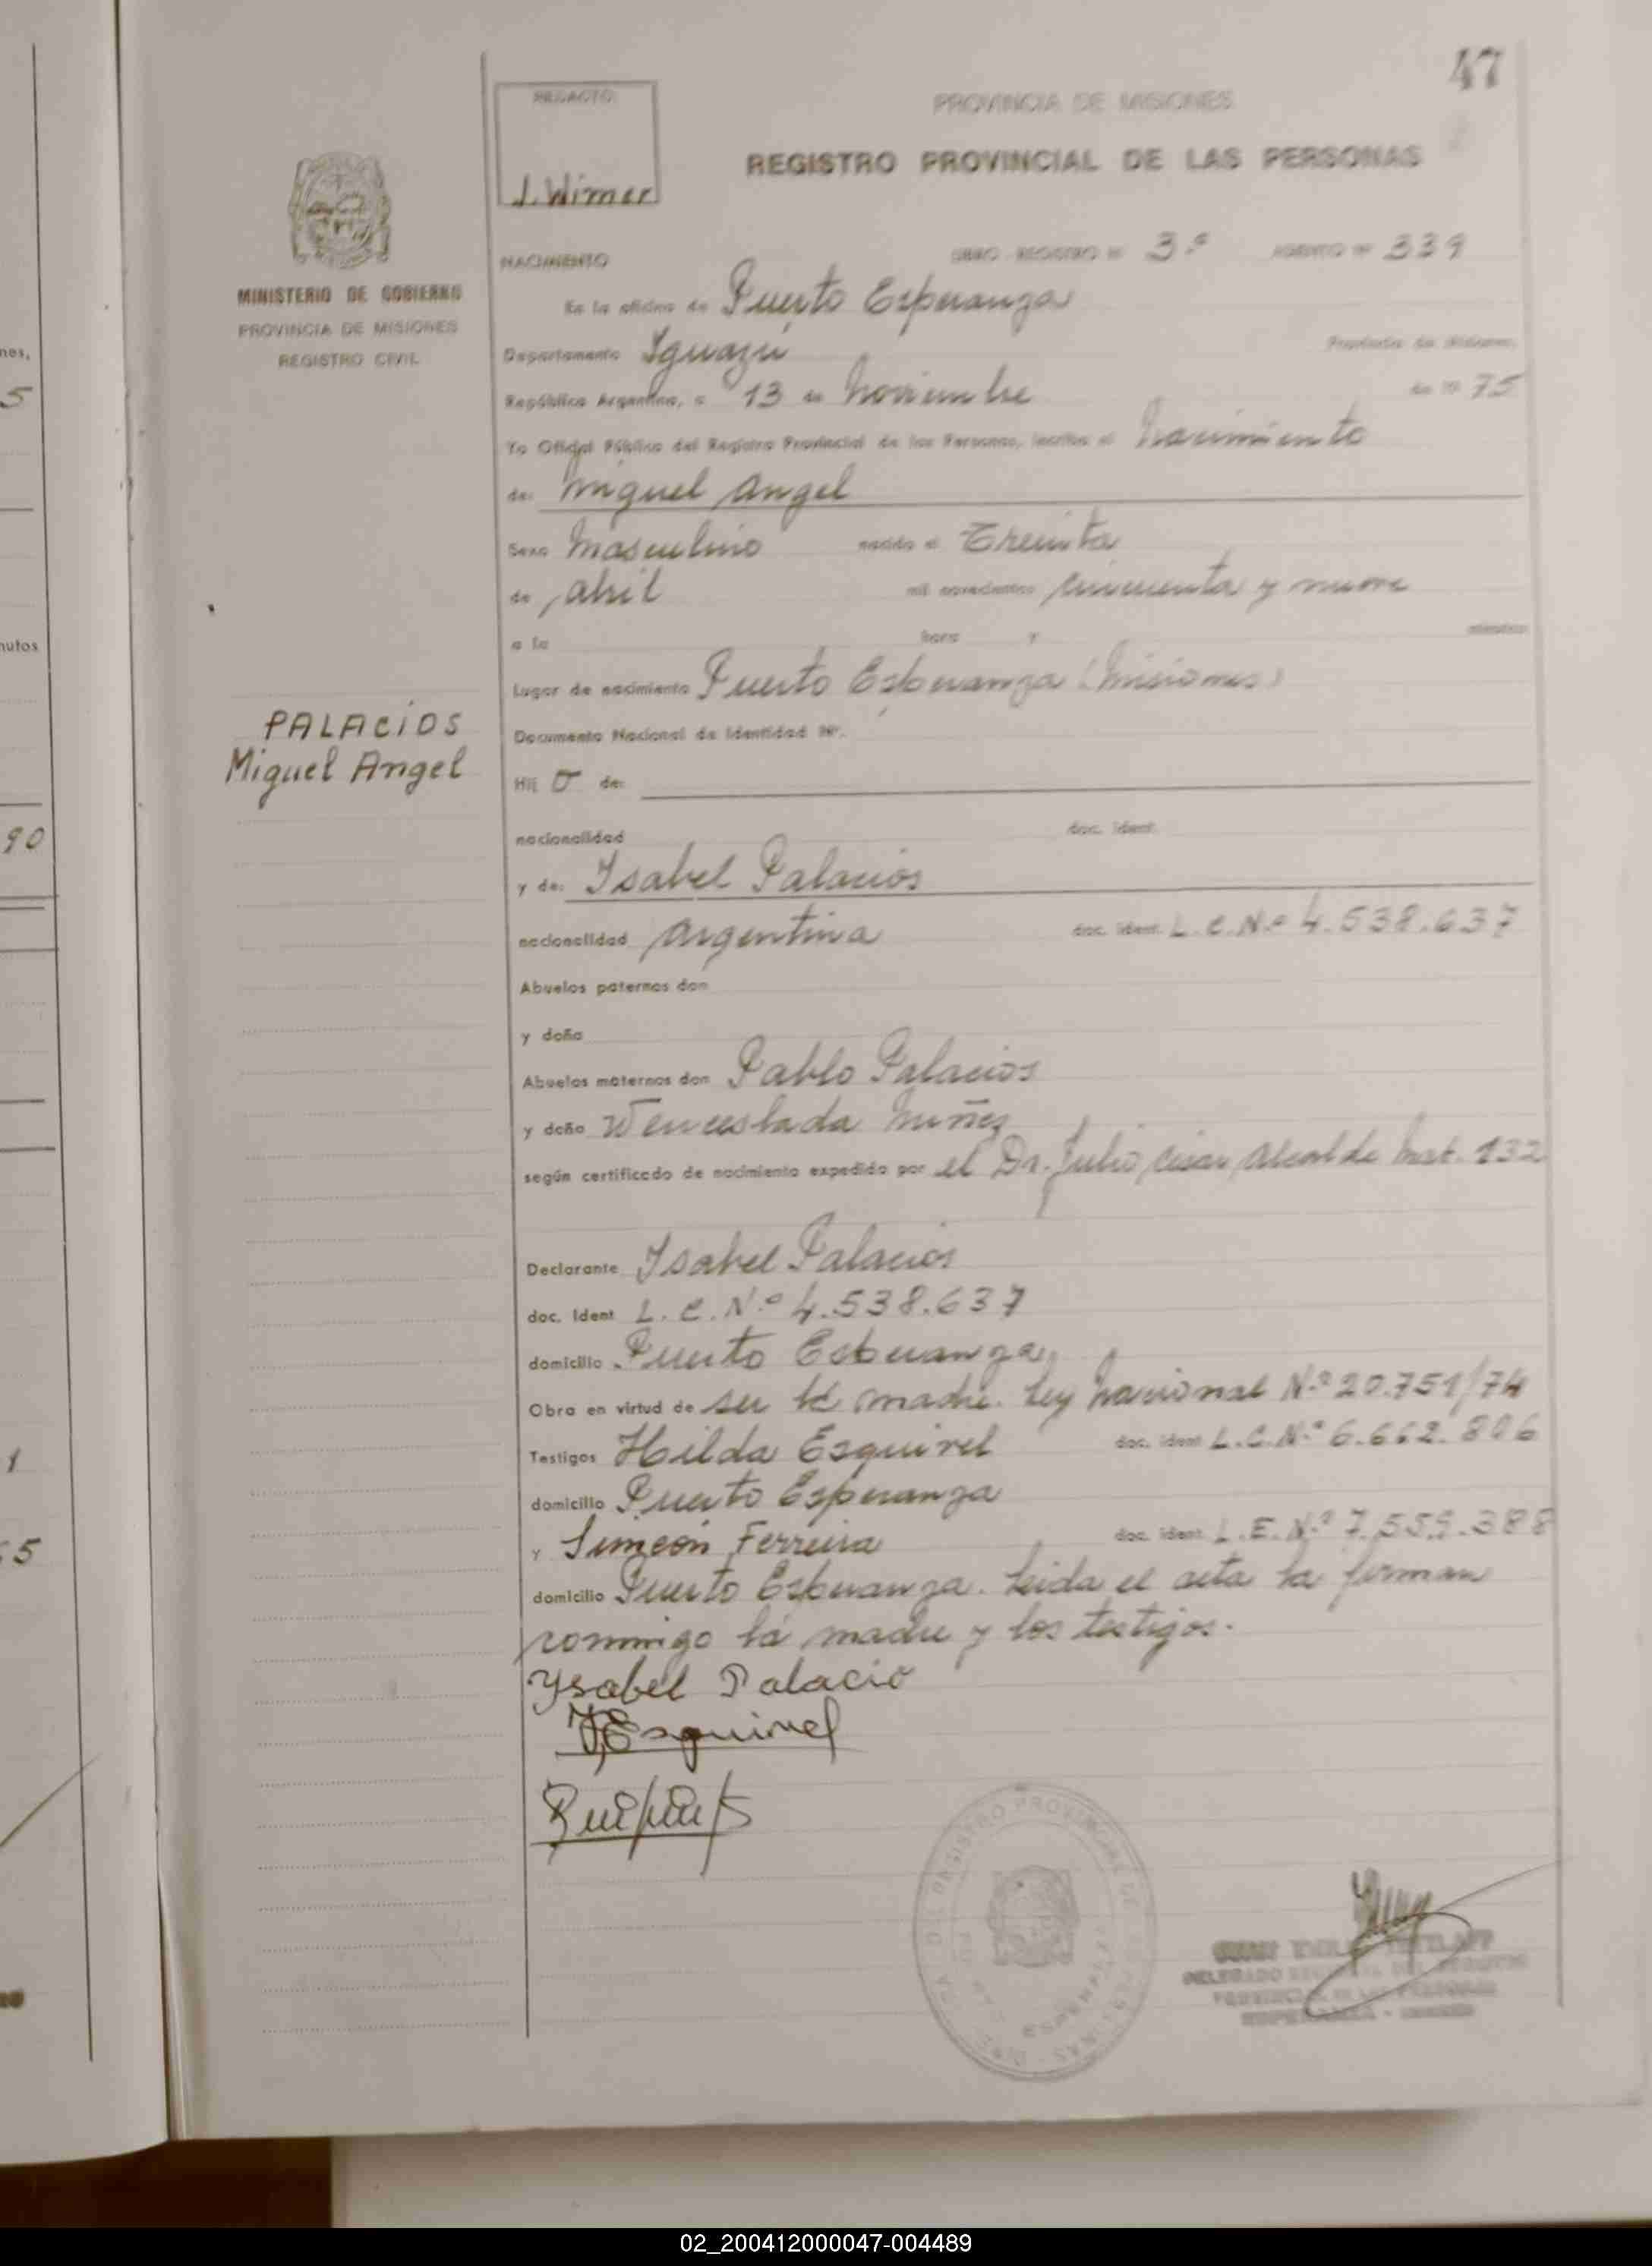 47
REDACTO:
J. Wimer
PROVINCIA DE MISIONES
REGISTRO PROVINCIAL DE LAS PERSONAS
MINISTERIO DE GOBIERNO
PROVINCIA DE MISIONES
REGISTRO CIVIL
NACIMIENTO LIBRO REGISTRO Nº 3.º ASIENTO Nº 339
En la oficina de Puerto Esperanza
Departamento Iguazú Provincia de Misiones,
República Argentina, a 13 de Noviembre de 19 75
Yo Oficial Público del Registro Provincial de las Personas, inscribo el Nacimiento
de: Miguel Angel
Sexo Masculino nacido el Treinta
de Abril mil novecientos cincuenta y nueve
a la hora y minutos
Lugar de nacimiento Puerto Esperanza (Misiones)
Documento Nacional de Identidad Nº.
PALACIOS
Miguel Angel
Hij o de:
nacionalidad doc. ident.
y de: Isabel Palacios
nacionalidad Argentina doc. ident. L.C.N.º 4.538.637
Abuelos paternos don
y doña
Abuelos maternos don Pablo Palacios
y doña Wenceslada Nuñez
según certificado de nacimiento expedido por el Dr. Julio César Alcalde Mat. 132
Declarante Isabel Palacios
doc. Ident L.C.N.º 4.538.637
domicilio Puerto Esperanza
Obra en virtud de ser la madre. Ley Nacional N.º 20.751/74
Testigos Hilda Esquivel doc. ident L.C.N.º 6.662.806
domicilio Puerto Esperanza
y Simeón Ferreira doc. ident. L.E.N.º 7.559.388
domicilio Puerto Esperanza. Leida el acta la firman
conmigo la madre y los testigos.
Ysabel Palacio
Esquivel
nes,
5
nutos
90
1
65
02_200412000047-004489